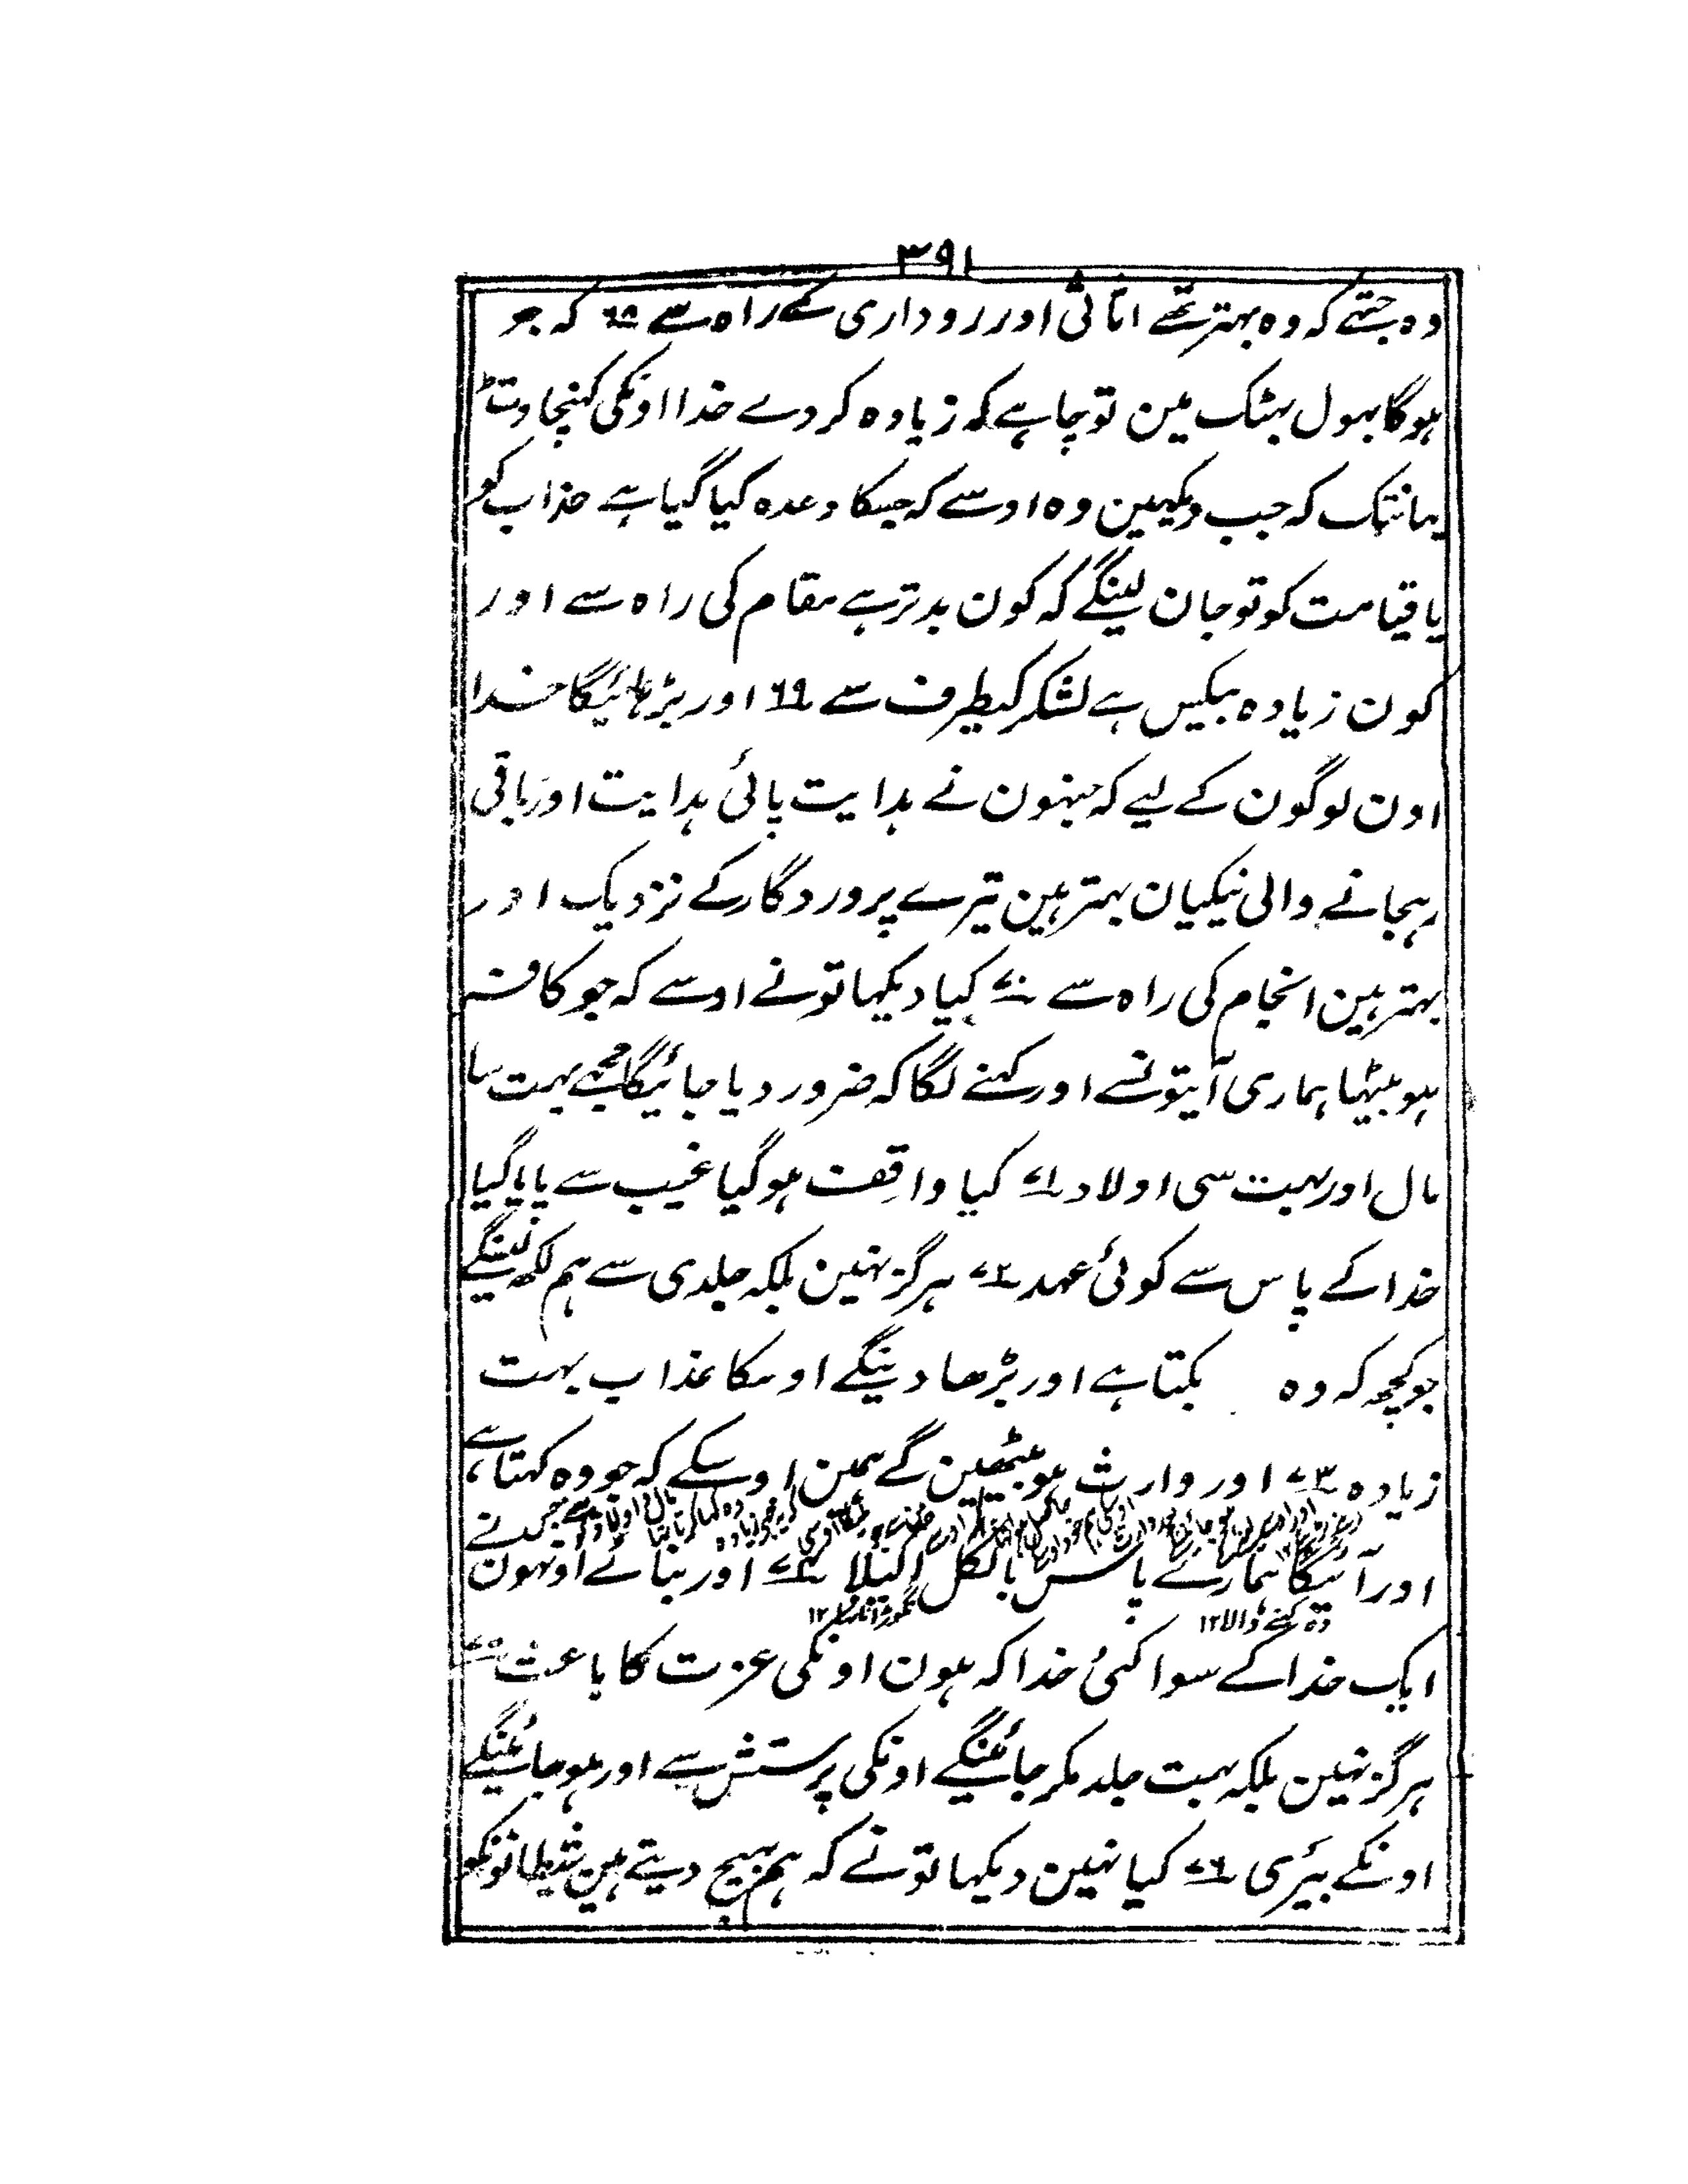 ۳۹۱
وہ جتھے کہ وہ بہتر تھے اثاثی اور رو داری کے راہ سے ۶۸ کہ جو
ہوگا بہول بہٹک مین تو چاہے کہ زیادہ کر دے خدا اونکی کہنچاوٹ
یہانتک کہ جب دیکہین وہ اوسے کہ جسکا وعدہ کیا گیا ہے عذاب کو
یا قیامت کو تو جان لینگے کہ کون بدتر ہے مقام کی راہ سے اور
کون زیادہ بیکس ہے لشکر کیطرف سے ۶۹ اور بڑہائیگا خدا
اون لوگون کے لیے کہ جنہون نے ہدایت پائی ہدایت اور باقی
رہجانے والی نیکیان بہتر ہین تیرے پروردگار کے نزدیک اور
بہتر ہین انجام کی راہ سے ۷۰ کیا دیکہا تونے اوسے کہ جو کافر
ہو بیٹہا ہماری آیتونسے اور کہنے لگا کہ ضرور دیا جائیگا مجھے بہت سا
مال اور بہت سی اولاد ۷۱ کیا واقف ہو گیا غیب سے یا پا گیا
خدا کے پاس سے کوئی عہد ۷۲ ہرگز نہین بلکہ جلدی سے ہم لکھ لینگے
جو کچھ کہ وہ بکتا ہے اور بڑھا دینگے اوسکا عذاب بہت
زیادہ ۷۳ اور وارث ہو بیٹھین گے ہمین اوسکے کہ جو وہ کہتا ہے
اور آئیگا ہمارے پاس بالکل اکیلا ۷۴ اور بنائے اونہون نے
وہ کہنے والا ۱۲
ایک خدا کے سوا کئی خدا کہ ہون اونکی عزت کا باعث ۷۵
ہرگز نہین بلکہ بہت جلد مکر جائینگے اونکی پرستش سے اور ہو جائینگے
اونکے بیری ۷۶ کیا نہین دیکہا تونے کہ ہم بہیج دیتے ہین شیطانونکو